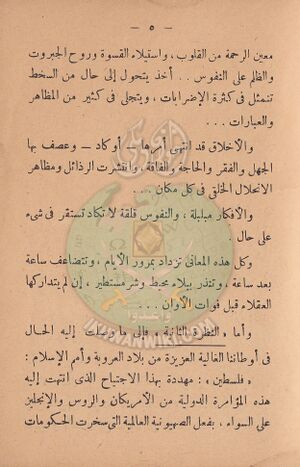 — ٥ —
معين الرحمة من القلوب ، واستيلاء القسوة وروح الجبروت
والظلم على النفوس . . أخذ يتحول إلى حال من السخط
تتمثل فى كثرة الإضرابات ، ويتجلى فى كثير من المظاهر
والعبارات . . .
والأخلاق قد انتهى أمرها — أو كاد — وعصف بها
الجهل والفقر والحاجة والفاقة ، وانتشرت الرذائل ومظاهر
الانحلال الخلقى فى كل مكان . . .
والأفكار مبلبلة ، والنفوس قلقة لا تكاد تستقر فى شىء
على حال .
وكل هذه المعانى تزداد بمرور الأيام ، وتتضاعف ساعة
بعد ساعة ، وتنذر ببلاء محيط وشر مستطير ، إن لم يتداركها
العقلاء قبل فوات الأوان . . .
وأما « النظرة الثانية » فإلى ما وصلت إليه الحال
فى أوطاننا الغالية العزيزة من بلاد العروبة وأمم الإسلام :
« فلسطين » : مهددة بهذا الاجتياح الذى انتهت إليه
هذه المؤامرة الدولية من الأمريكان والروس والإنجليز
على السواء ، بفعل الصهيونية العالمية التى سخرت الحكومات
IKHWANWIKI.COM
وأعدوا